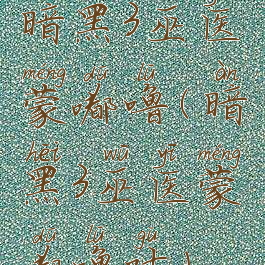 暗黑3巫医
méng dū lū àn
蒙嘟噜(暗
hēi wū yī méng
黑3巫医蒙
dū lū gu